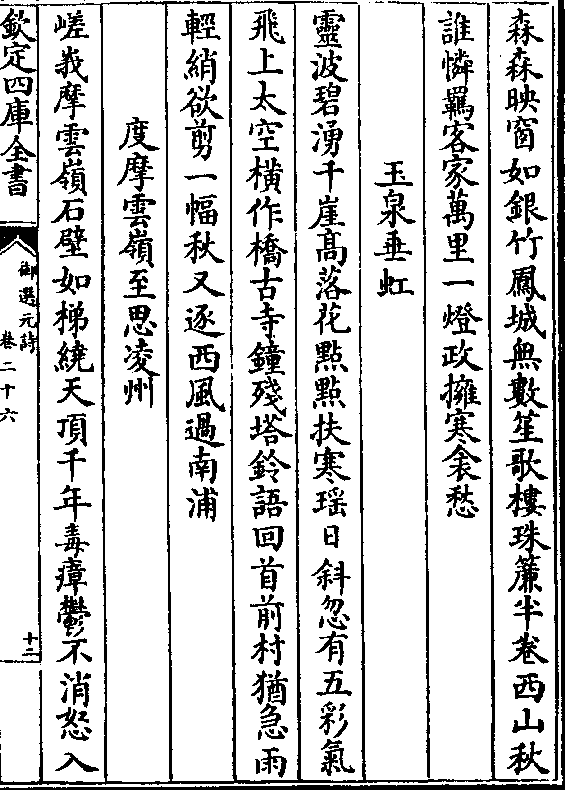 森森映窗如銀竹鳳城無數笙歌樓珠簾半卷西山秋
誰憐羈客家萬里一燈政擁寒衾愁
玉泉垂虹
靈波碧湧千崖高落花點點扶寒瑶日斜忽有五彩氣
飛上太空橫作橋古寺鐘殘塔鈴語回首前村猶急雨
輕綃欲剪一幅秋又逐西風過南浦
度摩雲嶺至思凌州
嵯峩摩雲嶺石壁如梯繞天頂千年毒瘴鬱不消怒入
欽定四庫全書
御選元詩
卷二十六
十二